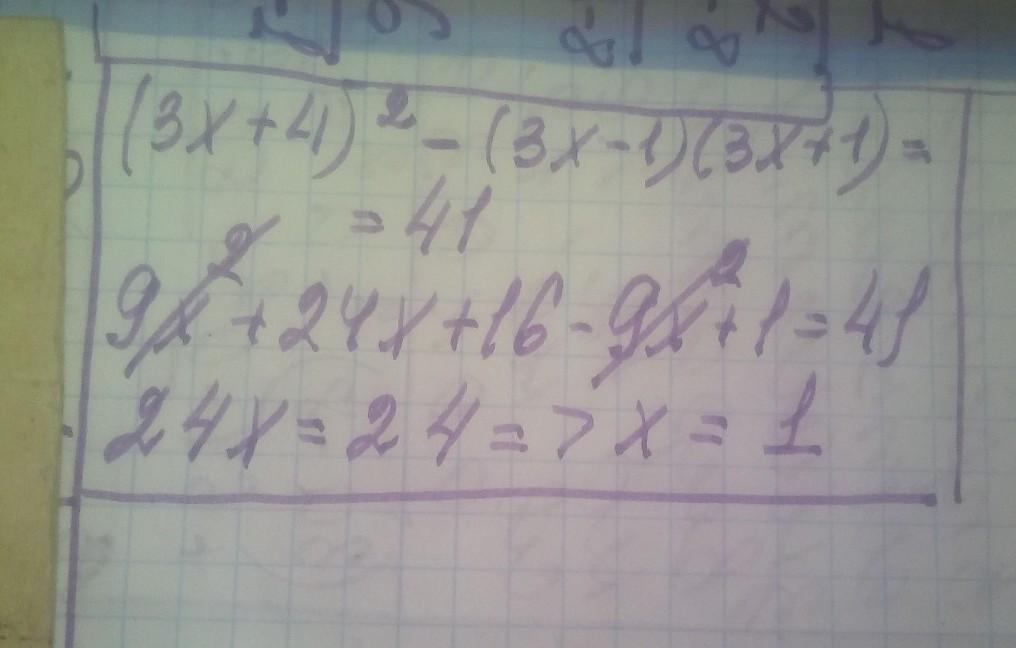 (3x+4)² - (3x-1)(3x+1) =
= 41
9x² + 24x + 16 - 9x² + 1 = 41
24x = 24 => x = 1